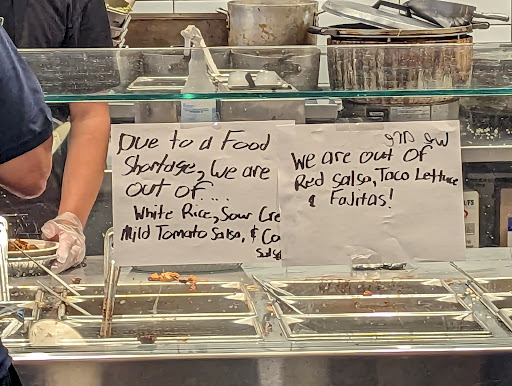 Due to a Food
Shortage, we are
out of....
White Rice, Sour Cre
Mild Tomato Salsa, & Co
Salsa
We are out of
Red Salsa, Taco Lettuce
& Fajitas!